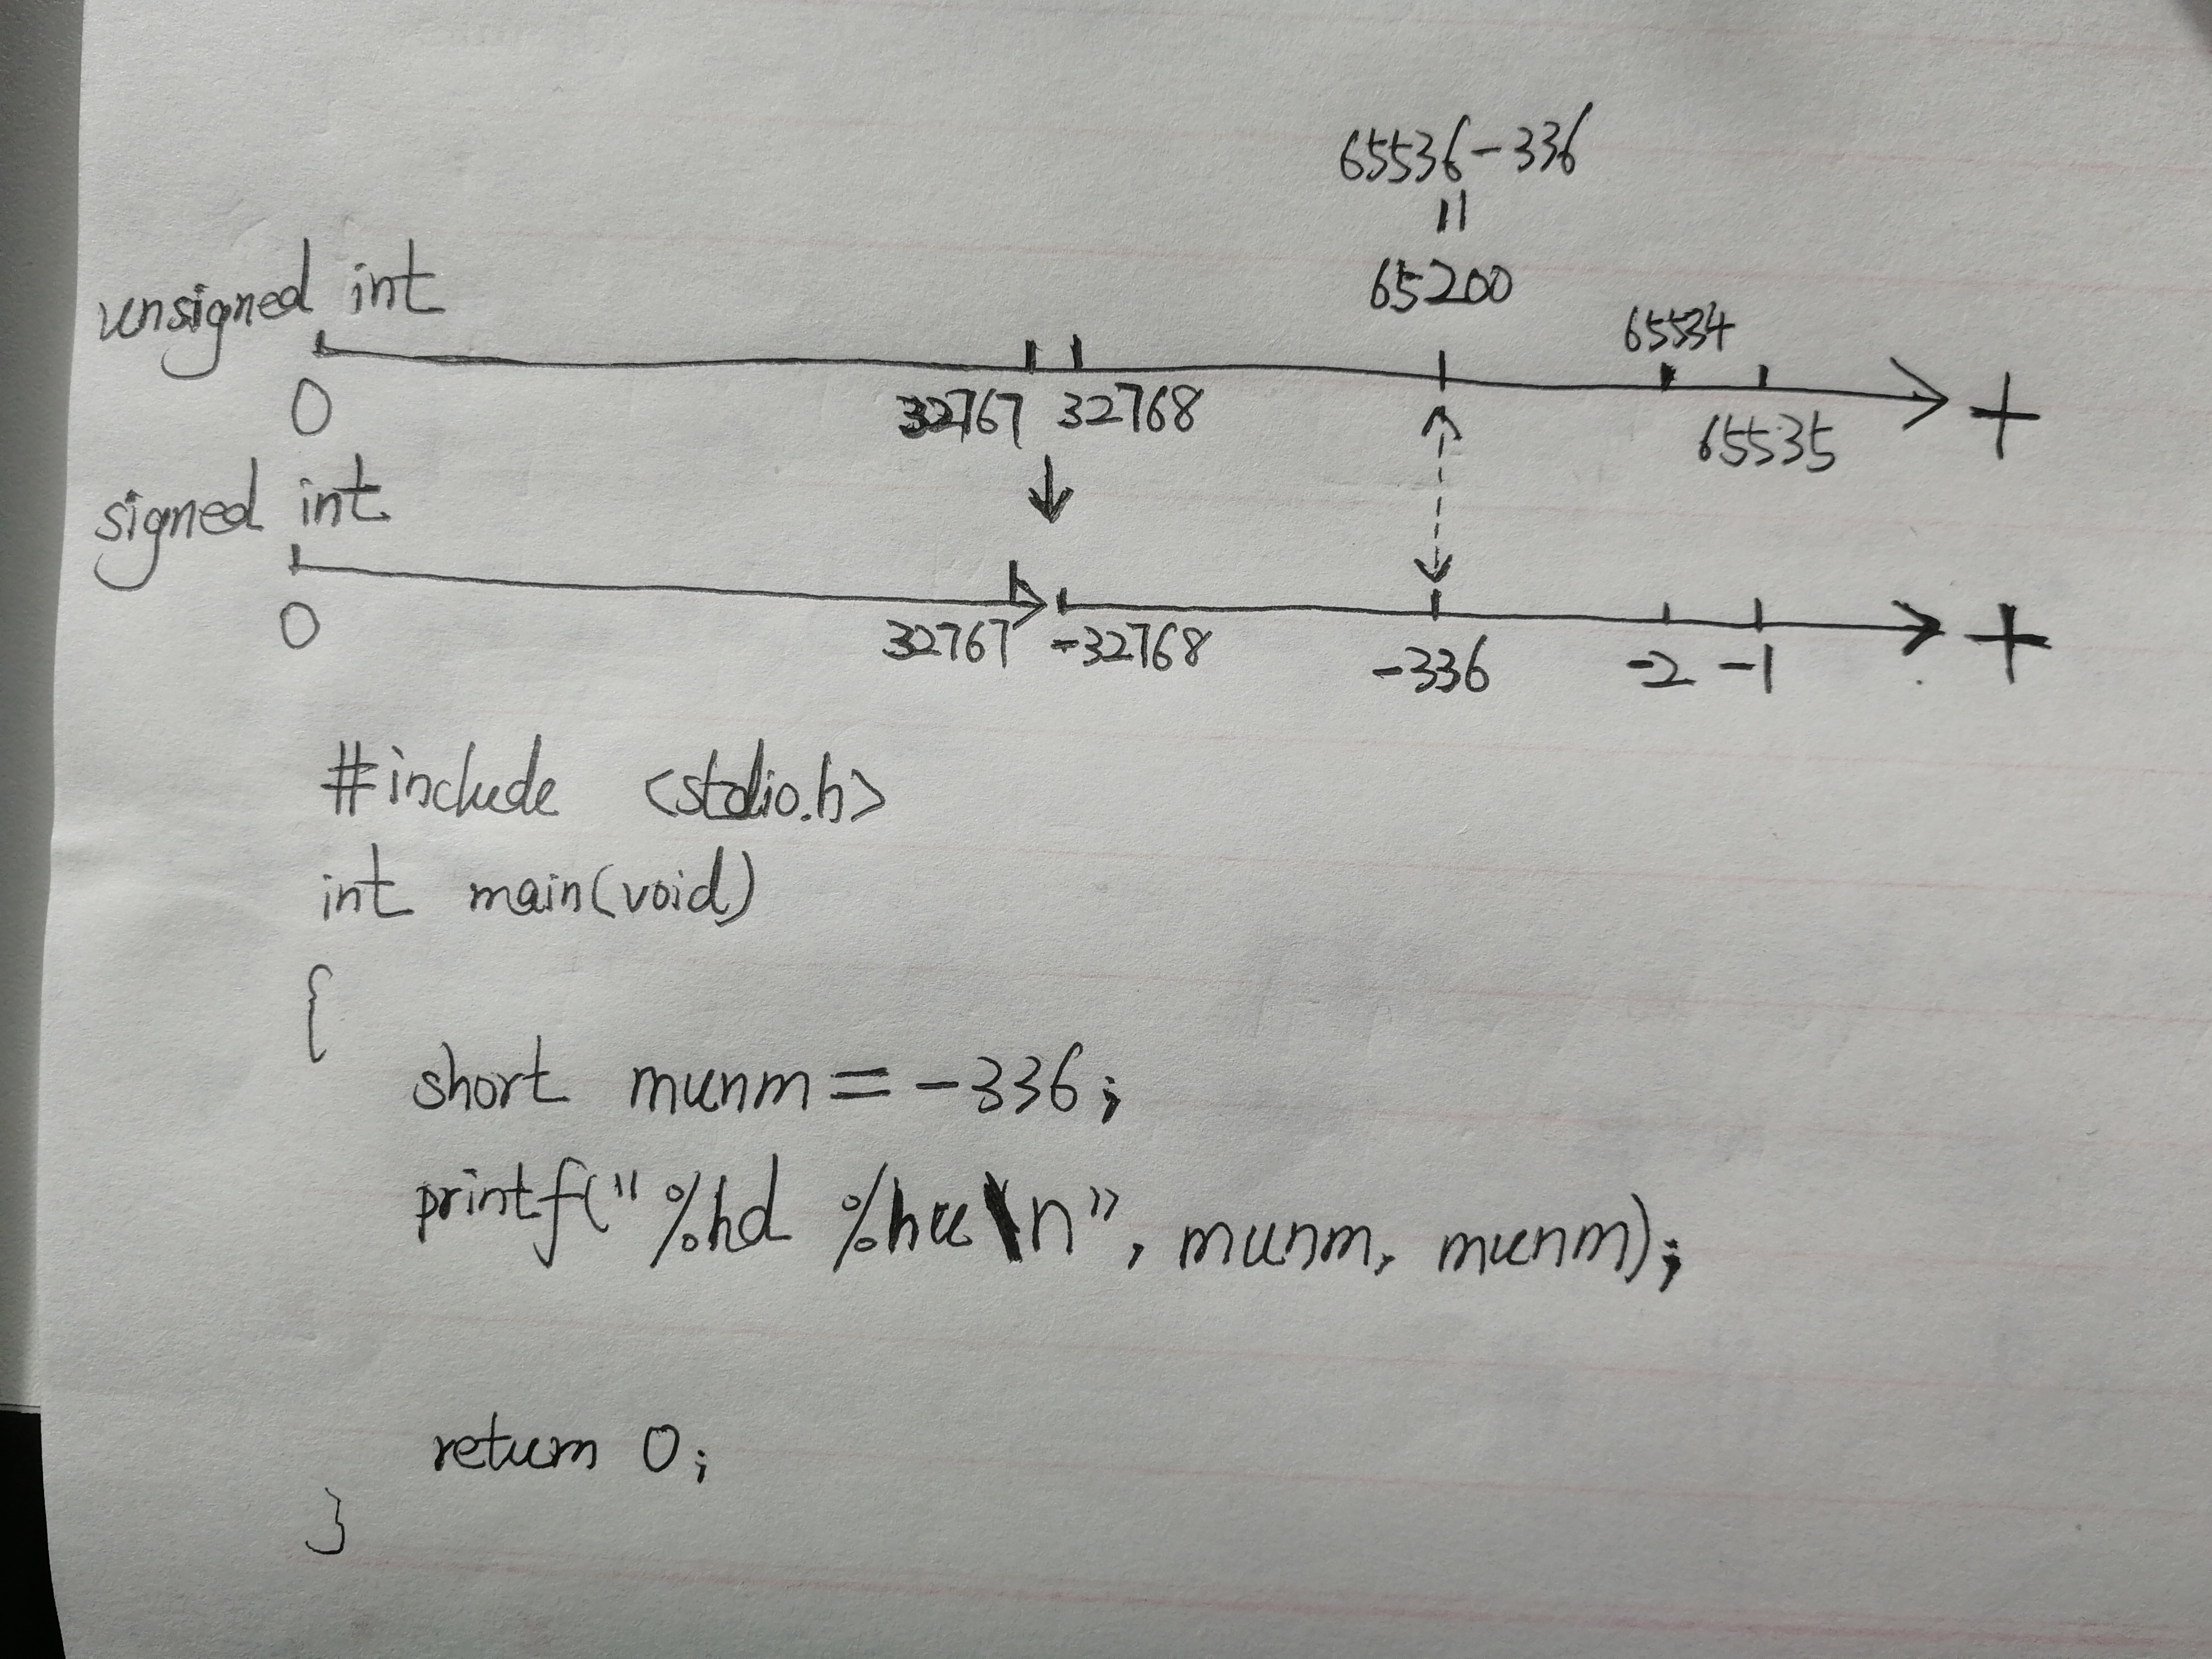 65536-336
=
65200
unsigned int
65534
0 32767 32768 65535 +
signed int
0 32767 -32768 -336 -2 -1 +
#include <stdio.h>
int main(void)
{
short munm = -336;
printf("%hd %hu\n", munm, munm);
return 0;
}